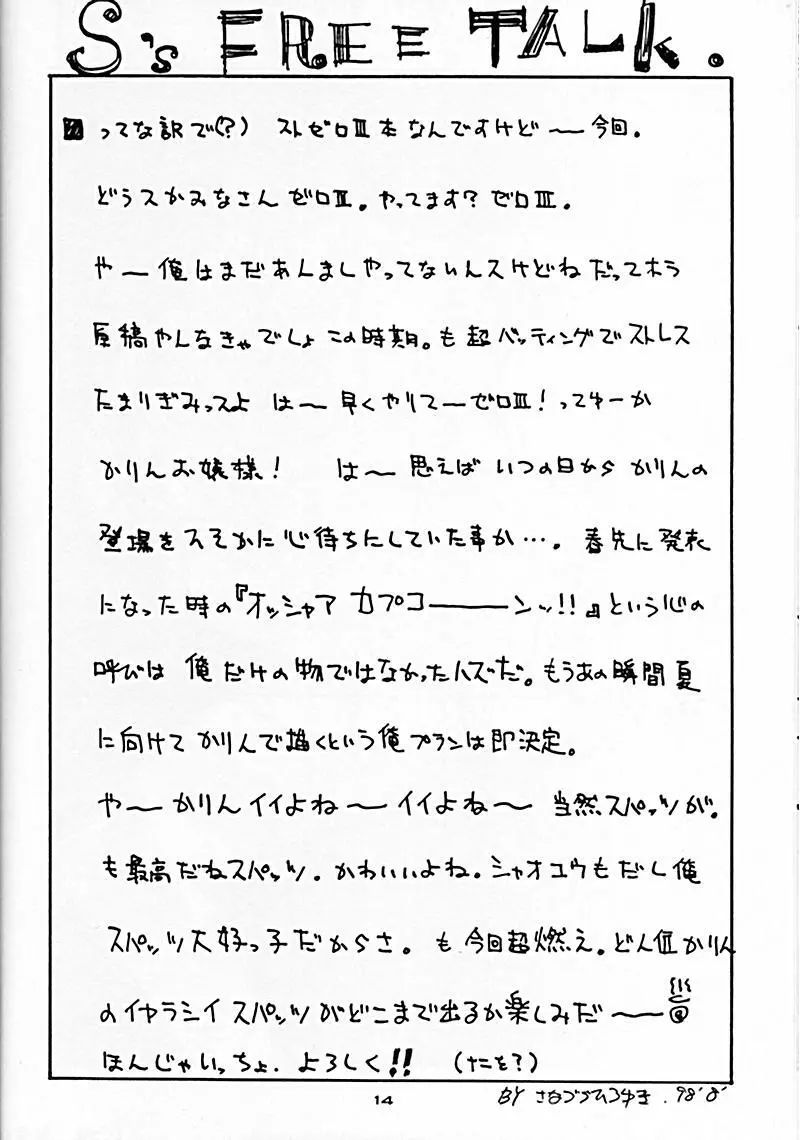 S's FREE TALK.
■ってな訳で(?) ストゼロⅢ本なんですけど〜今回。
どうスかみなさんゼロⅢ。やってます?ゼロⅢ。
や〜俺はまだあんましやってないんスけどねだってホラ
原稿やんなきゃでしょこの時期。も超バッティングでストレス
たまりぎみっスよ は〜早くやりてーゼロⅢ!ってゆーか
かりんお嬢様! は〜思えばいつの日からかりんの
登場をヘそかに心待ちにしていた事か…。春先に発表
になった時の『オッシャア カプコ―――ンッ!!』という心の
呼びは俺だけの物ではなかったハズだ。もうあの瞬間夏
に向けてかりんで描くという俺プランは即決定。
や〜かりんイイよね〜イイよね〜 当然スパッツが。
も最高だねスパッツ。かわいいよね。シャオユウもだし俺
スパッツ大好っ子だからさ。も今回超燃え。どん位かりん
のイヤラシイスパッツがどこまで出るか楽しみだ〜
ほんじゃいっちょ.よろしく!! (ナニを?)
14
BY さなづらひろゆき.98'8'